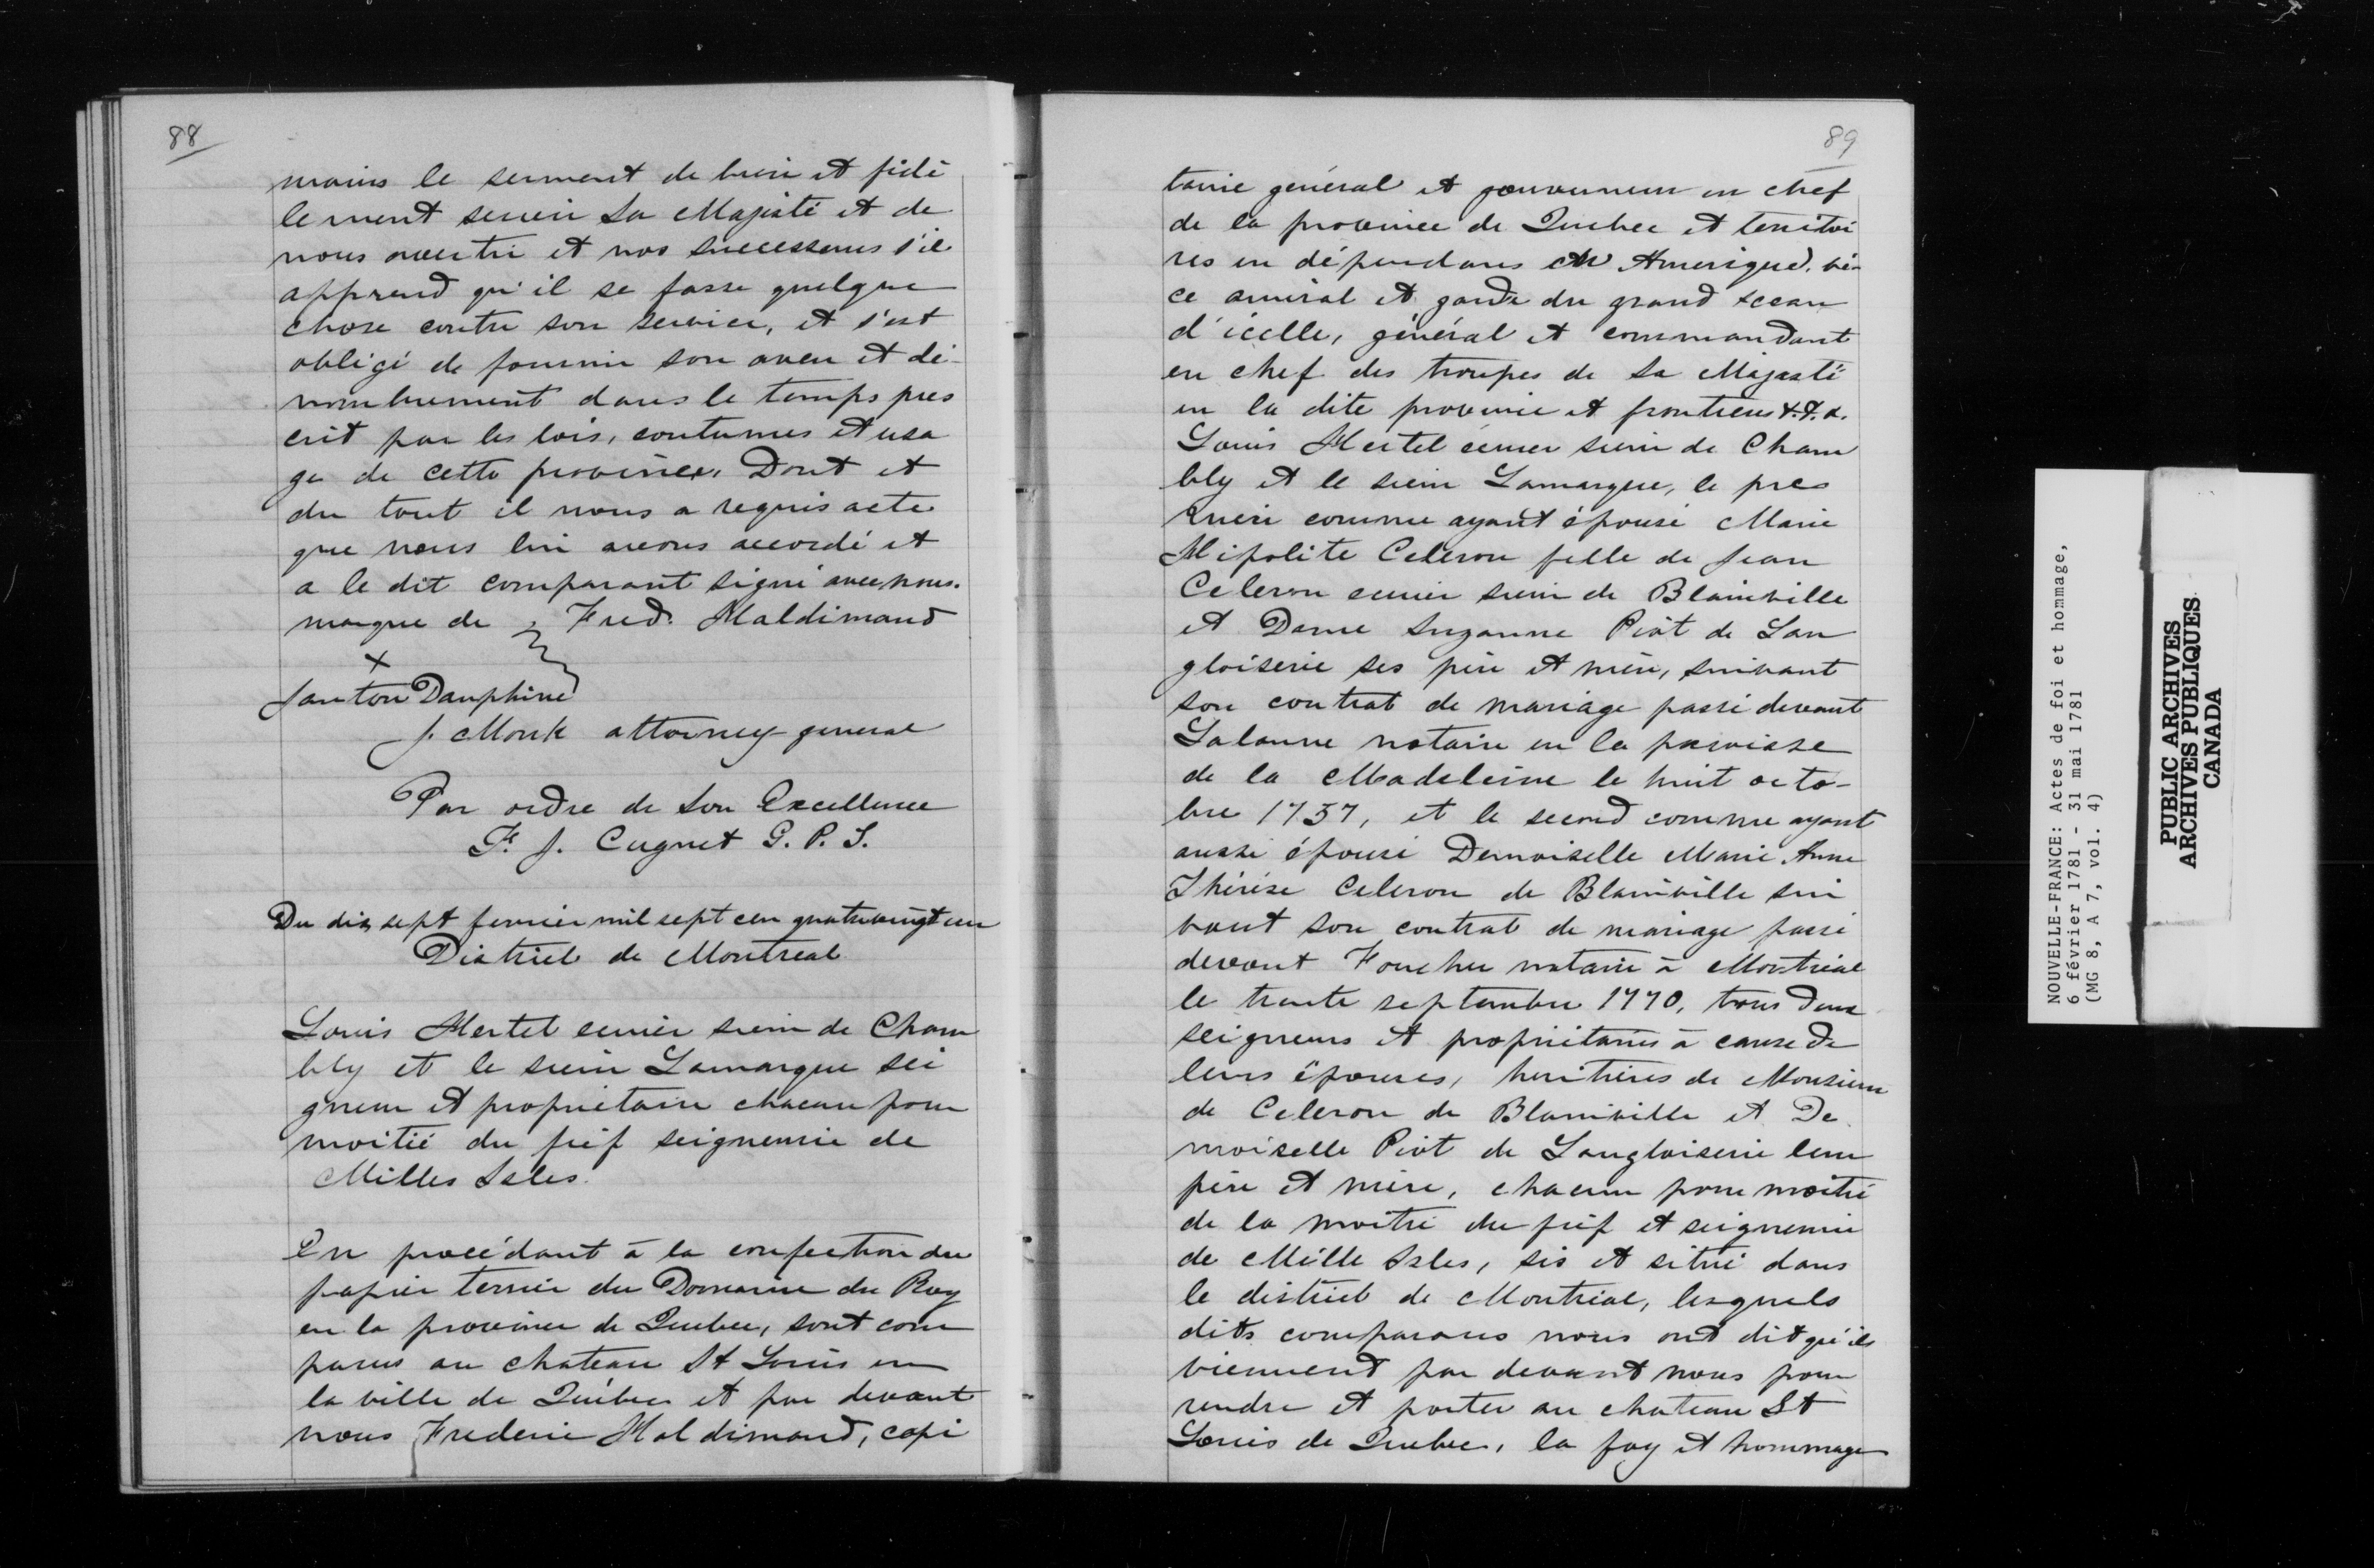 88
mains le serment de bien et fidè
lement servir Sa Majesté et de
nous avertir et nos successeurs s'il
apprend qu'il se fasse quelque
chose contre son service, et s'est
obligé de fournir son aveu et dé-
nombrement dans le temps pres
crit par les lois, coutumes et usa
ge de cette province. Dont et
du tout il nous a requis acte
que nous lui avons accordé et
a le dit comparant signé avec nous.
marque de Fred. Haldimand
x
Janton Dauphiné
J. Monk attorney general
Par ordre de Son Excellence
F. J. Cugnet G. P. T.
Du dix sept fevrier mil sept cen quatrevingt un
District de Montreal
Louis Hertel ecuier sieur de Cham
bly et le sieur Lamarque sei
gneur et proprietaire chacun pour
moitié du fief seigneurie de
Milles Isles.
En procédant à la confection du
papier terrier du Domaine du Roy
en la province de Quebec, sont com
parus au chateau St Louis en
la ville de Québec et par devant
nous Frederic Haldimand, capi
89
taine général et gouverneur en chef
de la province de Quebec et territoi
res en dépendans en Amerique, vi-
ce amiral et garde du grand sceau
d'icelle, général et commandant
en chef des troupes de Sa Majesté
en la dite province et frontieres &.&.&.
Louis Hertel ecuier sieur de Cham
bly et le sieur Lamarque, le pre
mier comme ayant épousé Marie
Hipolite Celeron fille de Jean
Celeron ecuier sieur de Blainville
et Dame Suzanne Piot de Lan
gloiserie ses père et mère, suivant
son contrat de mariage passé devant
Lalanne notaire en la paroisse
de la Madeleine le huit octo-
bre 1757, et le second comme ayant
aussi épousé Demoiselle Marie Anne
Thérèse Celeron de Blainville sui
vant son contrat de mariage passé
devant Foucher notaire à Montréal
le trente septembre 1770, tous deux
seigneurs et propriétaires à cause de
leurs épouses, heritières de Monsieur
de Celeron de Blainville et De
moiselle Piot de Langloiserie leur
père et mère, chacun pour moitié
de la moitié du fief et seigneurie
de Mille Isles, sis et situé dans
le district de Montréal, lesquels
dits comparans nous ont dit qu'ils
viennent par devant nous pour
rendre et porter au chateau St
Louis de Quebec, la foy et hommage
NOUVELLE-FRANCE: Actes de foi et hommage,
6 février 1781 - 31 mai 1781
(MG 8, A 7, vol. 4)
PUBLIC ARCHIVES
ARCHIVES PUBLIQUES
CANADA